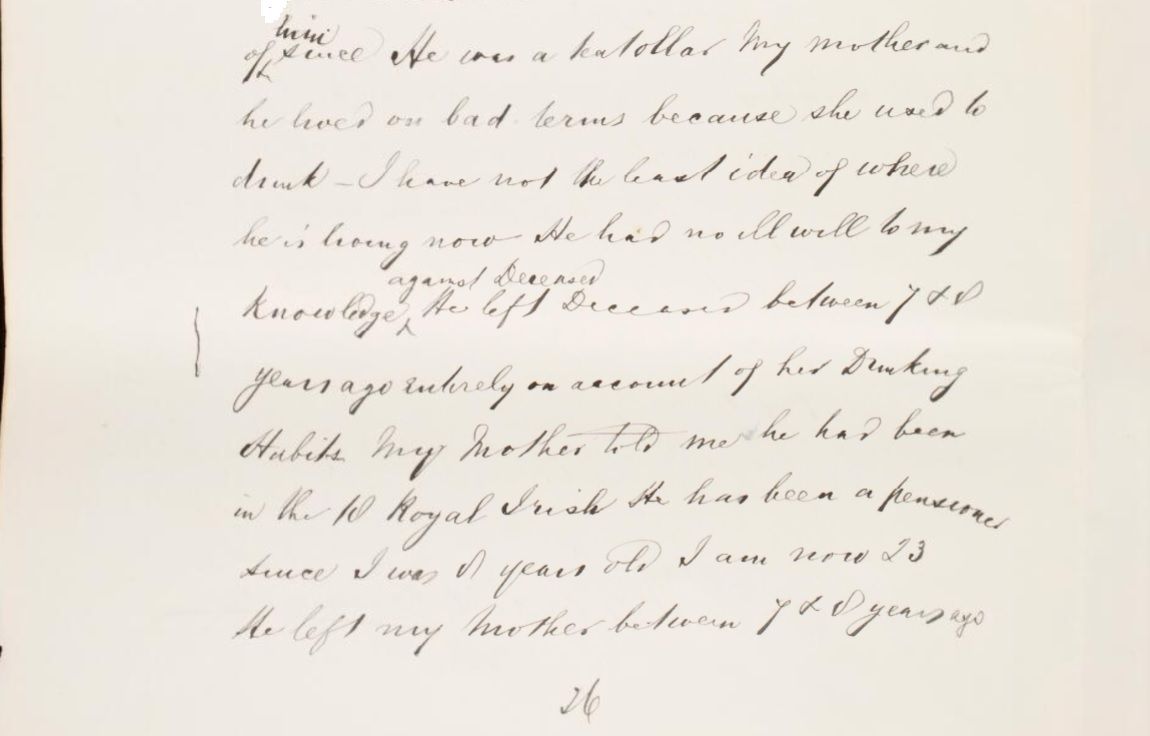 of him since He was a teatollar My mother and
he lived on bad terms because she used to
drink – I have not the least idea of where
he is living now He had no ill will to my
Knowledge against Deceased He left Deceased between 7 & 8
years ago entirely on account of her Drinking
Habits My Mother told me he had been
in the 18 Royal Irish He has been a pensioner
since I was 8 years old I am now 23
He left my Mother between 7 & 8 years ago
26